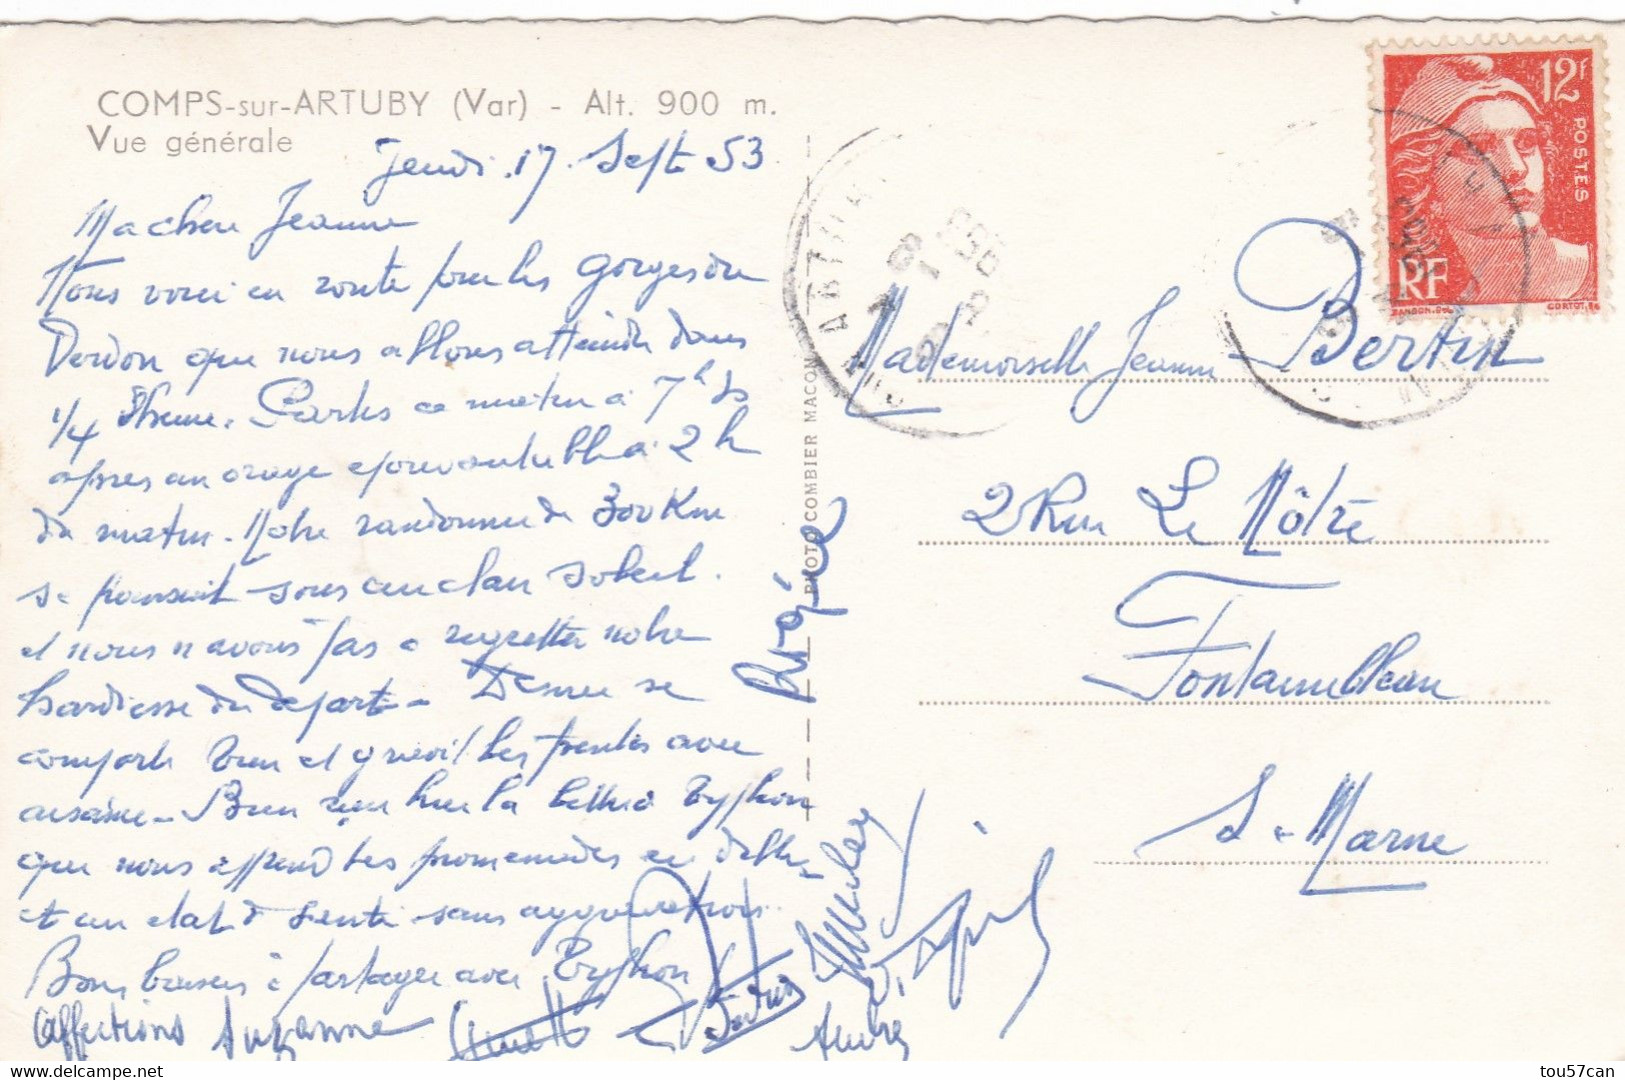 COMPS-sur-ARTUBY (Var) - Alt. 900 m.
Vue générale
Jeudi 17 Sept 53
Ma chère Jeanne
Nous voici en route pour les Gorges du
Verdon que nous allons atteindre dans
1/4 d'heure. Partis ce matin à 7h
après un orage épouvantable à 2h
du matin. Notre randonnée de 300 Km
se poursuit sous un clair soleil.
et nous n'avons pas à regretter notre
hardiesse du départ. se
comporte bien et gravit les pentes avec
aisance. Bien reçu hier la lettre à Typhon
que nous apprend tes promenades en
et un état de santé sans aggravation.
Bons baisers à partager avec Typhon
Affections Suzanne
PHOTO COMBIER MACON
Mademoiselle Jeanne Bertin
2 Rue Le Nôtre
Fontainebleau
S-Marne
12F
POSTES
RF
GANDON.DEL
CORTOT.SC
tou57can